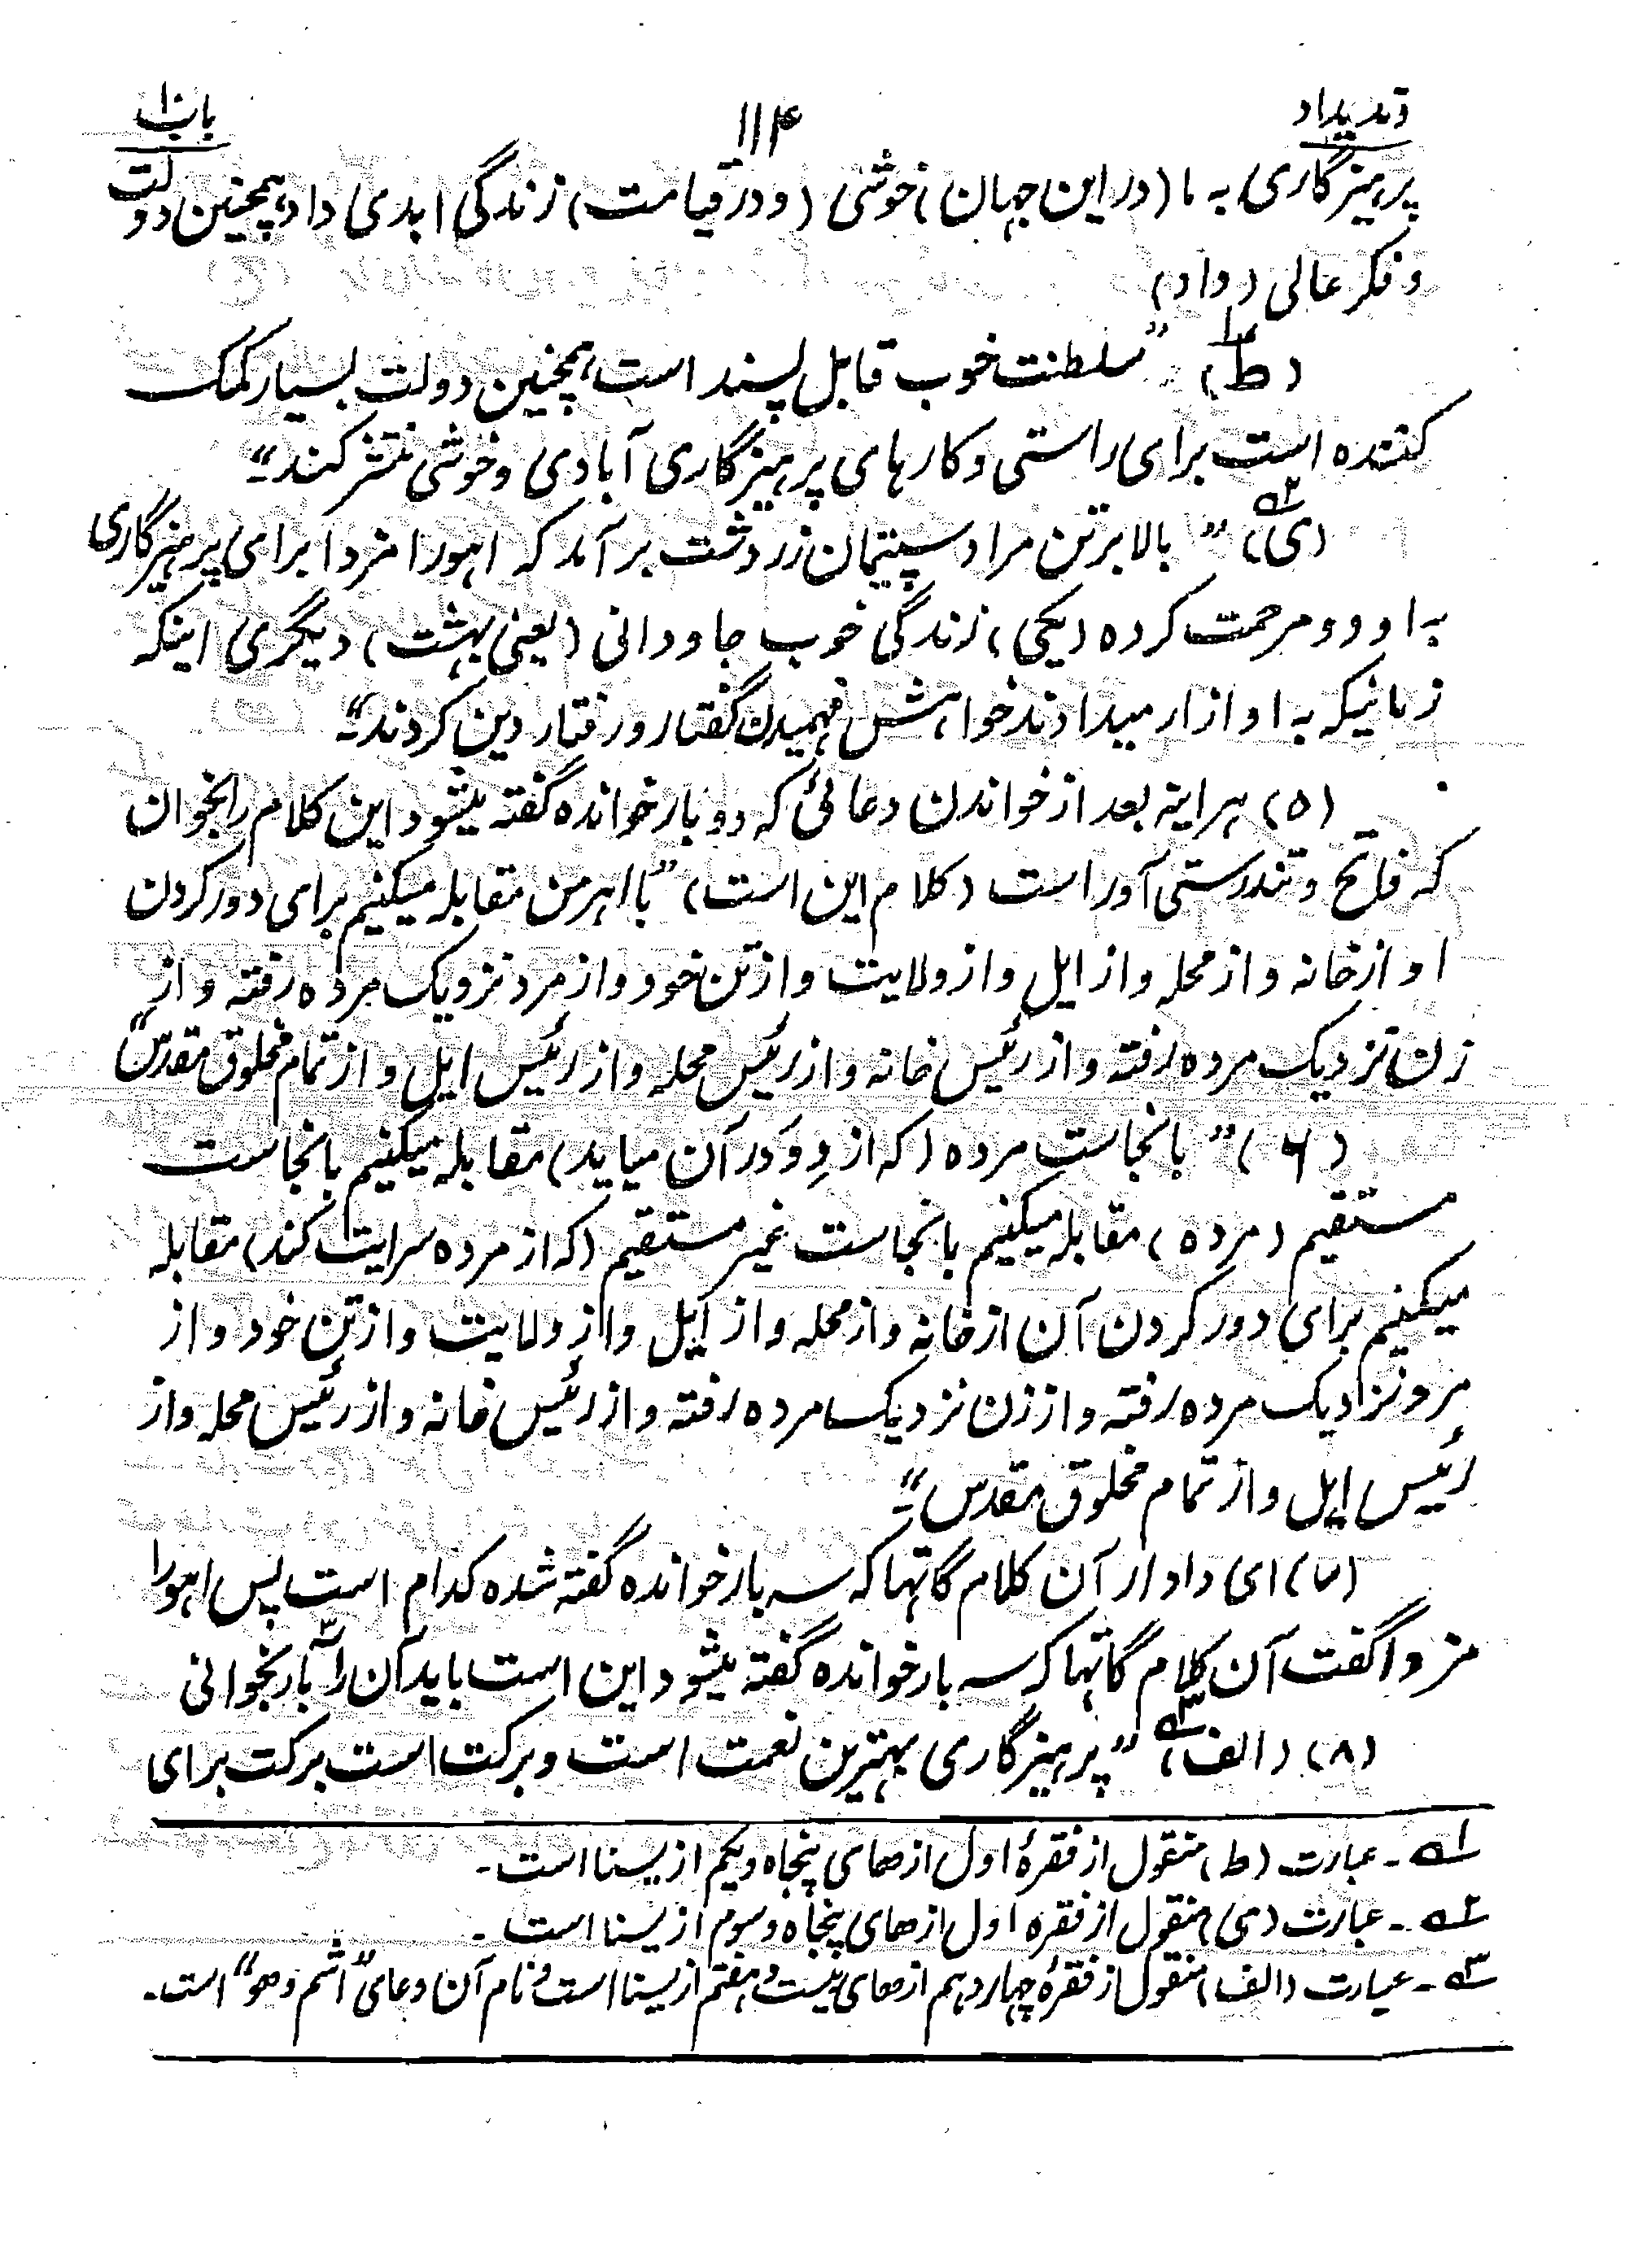 وندیداد
۱۱۴
باب ۱۰
پرهیزگاری به ما (در این جهان) خوشی (و در قیامت) زندگی ابدی داد، همچنین دولت
و فکر عالی (داد)
(ط)۱ "سلطنت خوب قابل پسند است، همچنین دولت بسیار کمک
کننده است برای راستی و کارهای پرهیزگاری آبادی و خوشی منتشر کند"
(ی)۲ "بالا برترن مراد سپیتمان زردشت بر آمد که اهورا مزدا برای پرهیزگاری
به او دو مرحمت کرده (یکی) زندگی خوب جاودانی (یعنی بهشت) دیگری اینکه
زمانیکه به او ازار میدادند خواهش فهمیدن گفتار و رفتار دین کردند"
(۵) هر اینه بعد از خواندن دعائی که دو بار خوانده گفته میشود این کلام را بخوان
که فاتح و تندرستی آور است (کلام این است) "با اهرمن مقابله میکنیم برای دور کردن
او از خانه و از محله و از ایل و از ولایت و از تن خود و از مرد نزدیک مرده رفته و از
زن نزدیک مرده رفته و از رئیس خانه و از رئیس محله و از رئیس ایل و از تمام مخلوق مقدس"
(۶) "با نجاست مرده (که از دِوَ در آن میاید) مقابله میکنیم با نجاست
مستقیم (مرده) مقابله میکنیم با نجاست غیر مستقیم (که از مرده سرایت کند) مقابله
میکنیم برای دور کردن آن از خانه و از محله و از ایل و از ولایت و از تن خود و از
مرد نزدیک مرده رفته و از زن نزدیک مرده رفته و از رئیس خانه و از رئیس محله و از
رئیس ایل و از تمام مخلوق مقدس"
(۷) ای دادار آن کلام گاتها که سه بار خوانده گفته شده کدام است پس اهورا
مزدا گفت آن کلام گاتها که سه بار خوانده گفته میشود این است باید آن را ۳ بار بخوانی
(۸) (الف)۳ "پرهیزگاری بهترین نعمت است و برکت است برکت برای
۱ - عبارت (ط) منقول از فقرهٔ اول از های پنجاه و یکم از یسنا است -
۲ - عبارت (ی) منقول از فقره اول از های پنجاه و سوم از یسنا است -
۳ - عبارت (الف) منقول از فقرهٔ چهاردهم از های بیست و هفتم از یسنا است و نام آن دعای "اشم وهو" است -